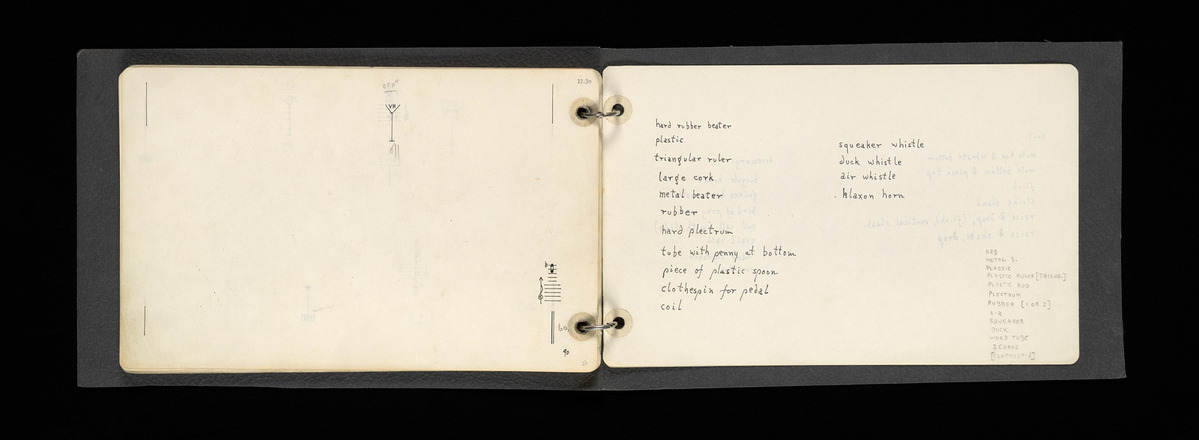 22.30
VH
60
90
hard rubber beater
plastic
triangular ruler
large cork
metal beater
rubber
hard plectrum
tube with penny at bottom
piece of plastic spoon
clothespin for pedal
coil
squeaker whistle
duck whistle
air whistle
klaxon horn
HRB
METAL B.
PLASTIC
PLASTIC RULER [TRIANG.]
PLASTIC ROD
PLECTRUM
RUBBER [1 OR 2]
AIR
SQUEAKER
DUCK
WOOD TUBE
2 CORKS
[CLOTHESPIN]